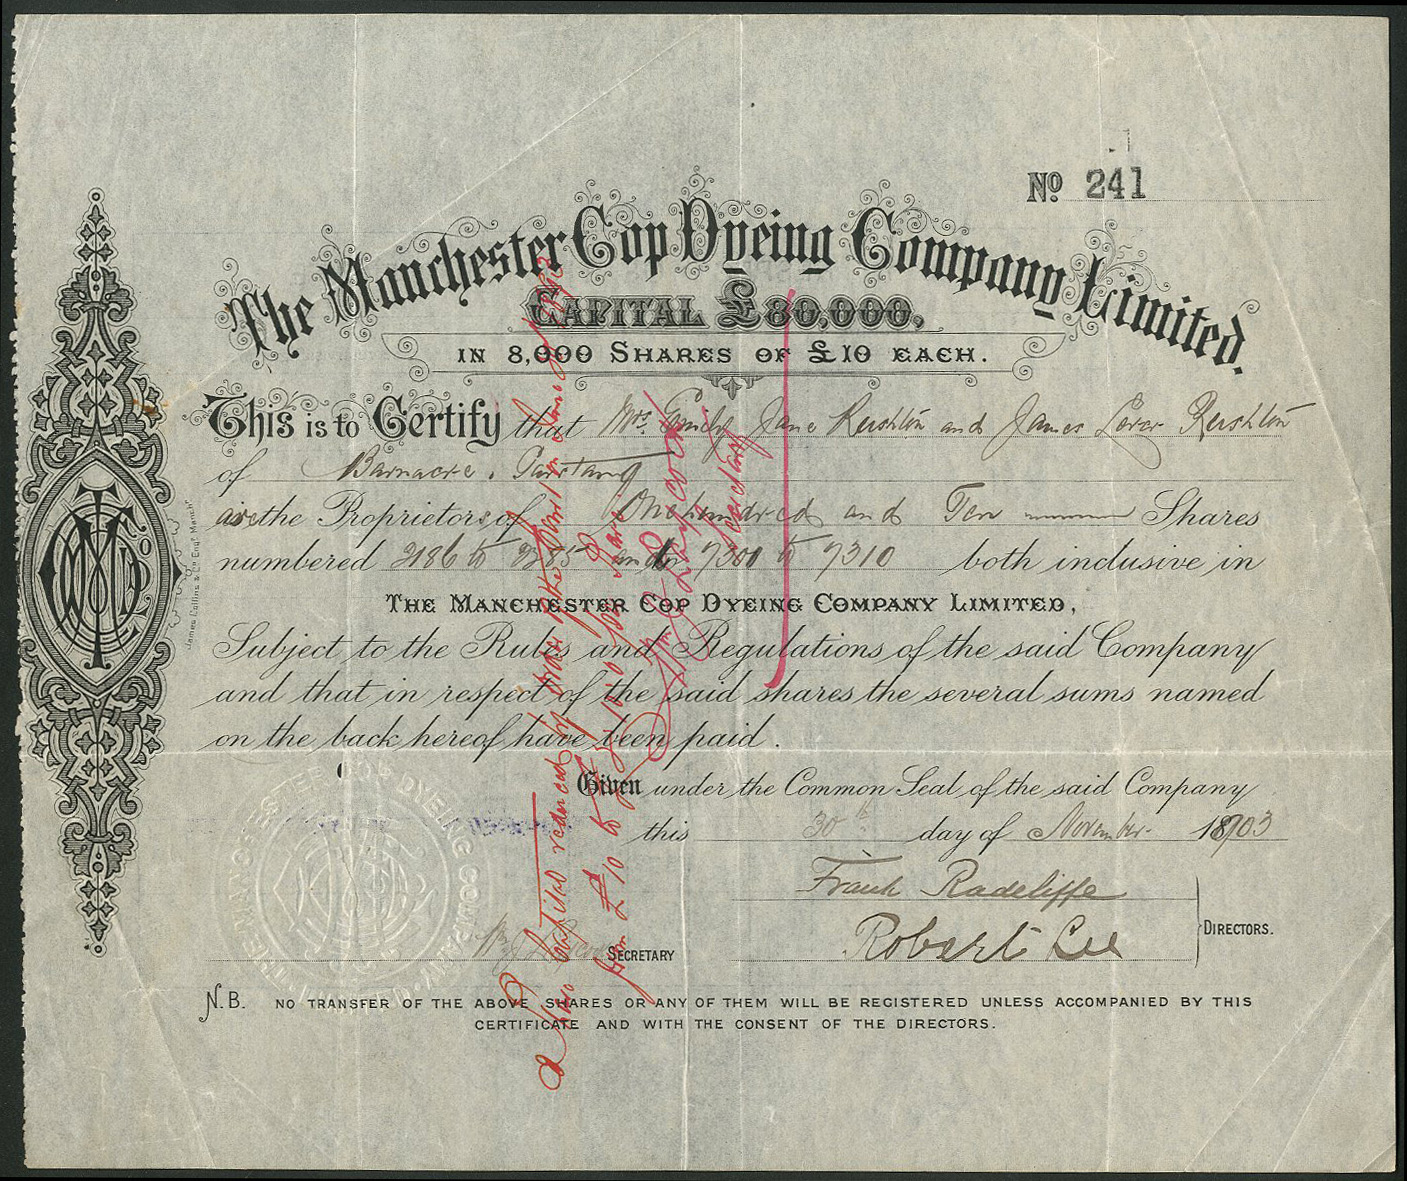 No 241
The Manchester Cop Dyeing Company Limited.
CAPITAL £80,000,
IN 8,000 SHARES OF £10 EACH.
This is to Certify that Mrs. Emily Jane Rushton and James Lever Rushton
of Barnacre. Garstang
are the Proprietors of One hundred and Ten Shares
numbered 2186 to 2285 and 7301 to 7310 both inclusive in
THE MANCHESTER COP DYEING COMPANY LIMITED,
Subject to the Rules and Regulations of the said Company
and that in respect of the said shares the several sums named
on the back hereof have been paid.
Given under the Common Seal of the said Company
this 30th day of November 1903
Frank Radcliffe
Robert Lee
DIRECTORS.
SECRETARY
N.B. NO TRANSFER OF THE ABOVE SHARES OR ANY OF THEM WILL BE REGISTERED UNLESS ACCOMPANIED BY THIS
CERTIFICATE AND WITH THE CONSENT OF THE DIRECTORS.
Capital reduced by order
from £10 to £ per share
Secretary
THE MANCHESTER COP DYEING COMPANY LIMITED